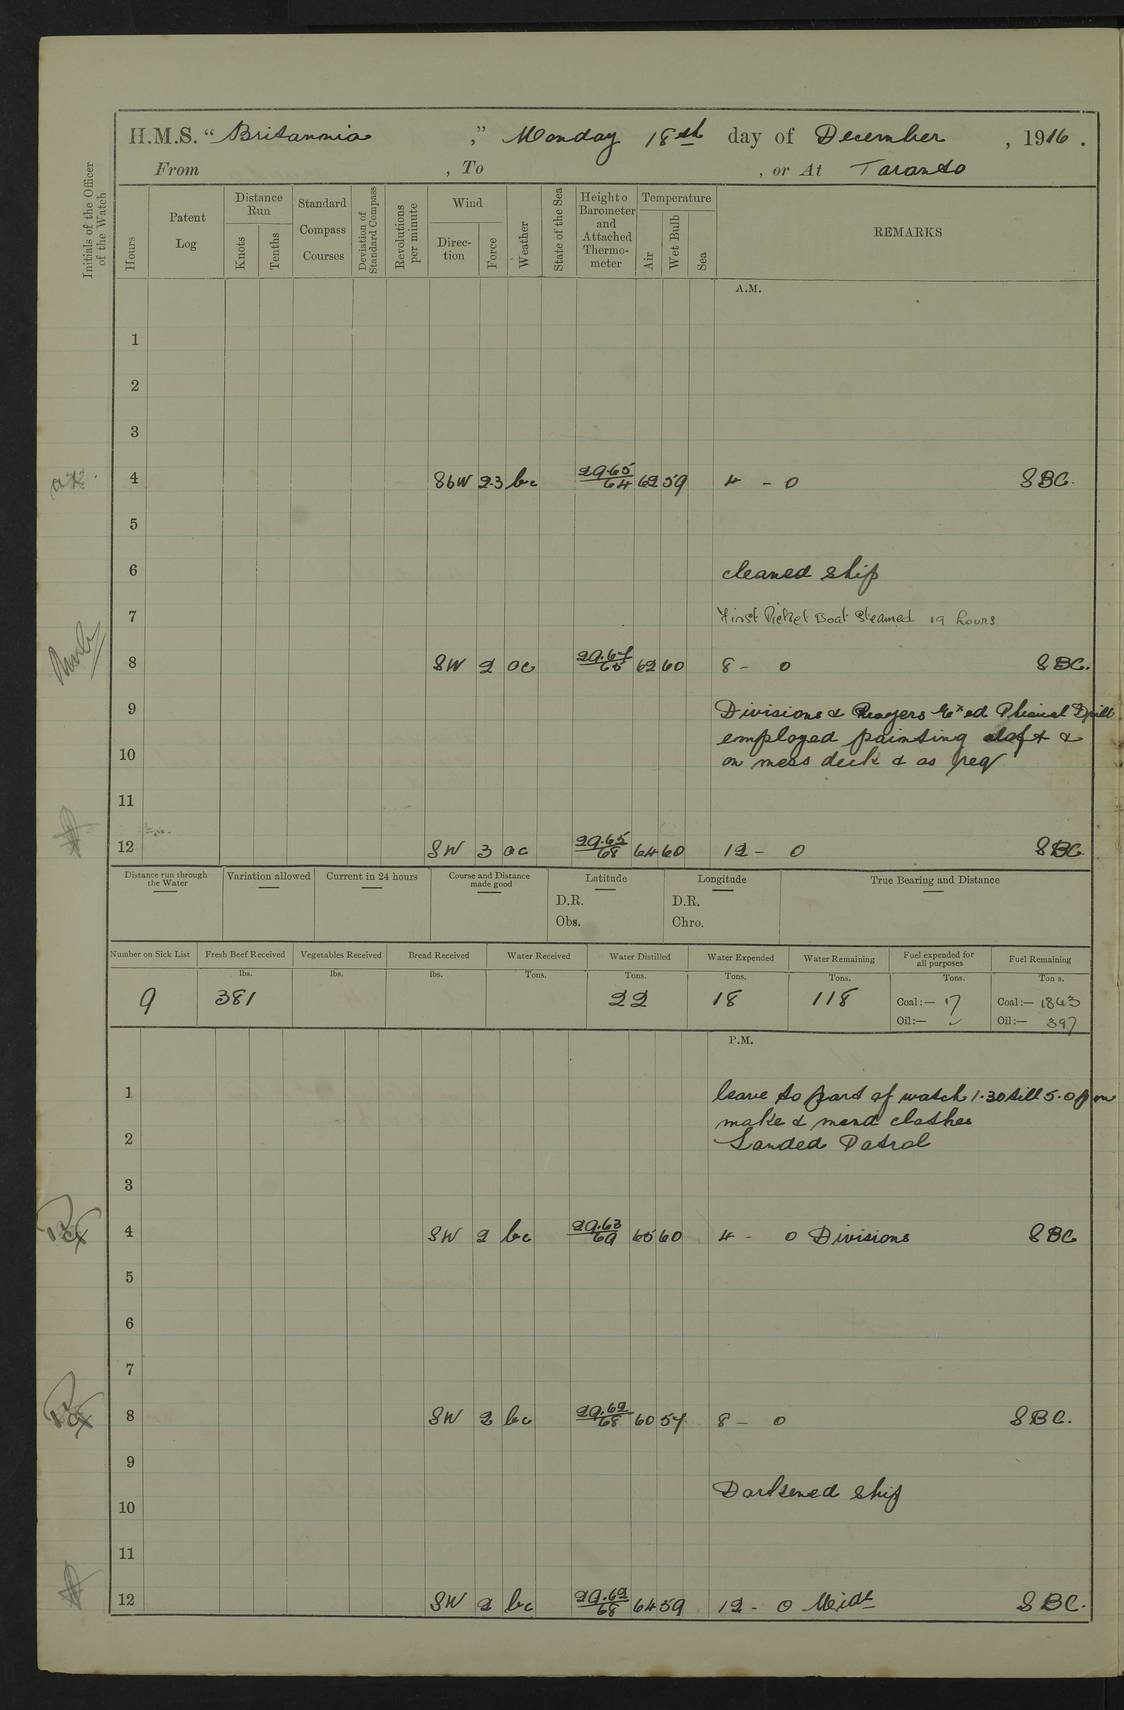 H.M.S. “ Britannia ,” Monday 18th day of December , 1916 .
From , To , or At Taranto
Initials of the Officer of the Watch
Hours
Patent Log
Distance Run
Knots
Tenths
Standard Compass Courses
Deviation of Standard Compass
Revolutions per minute
Wind
Direc-tion
Force
Weather
State of the Sea
Height o Barometer and Attached Thermo-meter
Temperature
Air
Wet Bulb
Sea
REMARKS
A.M.
1
2
3
4 SbW 2.3 bc 29.65/64 62 59 4 - 0 SBC.
5
6 cleaned ship
7 First Picket Boat Steamed 19 hours
8 SW 2 oc 29.67/65 62 60 8 - 0 SBC.
9 Divisions & Prayers Exed Phsical Drill
employed painting aloft &
10 on mess deck & as req
11
12 SW 3 oc 29.65/68 64 60 12 - 0 SBC
Distance run through the Water
Variation allowed
Current in 24 hours
Course and Distance made good
Latitude
D.R.
Obs.
Longitude
D.R.
Chro.
True Bearing and Distance
Number on Sick List
Fresh Beef Received
Vegetables Received
Bread Received
Water Received
Water Distilled
Water Expended
Water Remaining
Fuel expended for all purposes
Fuel Remaining
lbs. lbs. lbs. Tons. Tons. Tons. Tons. Tons. Ton s.
9 381 22 18 118 Coal:— 17 Coal:— 1843
Oil:— Oil:— 397
P.M.
1 leave to part of watch 1.30 till 5.0 pm
make & mend clothes
2 Landed Patrol
3
4 SW 2 bc 29.63/69 65 60 4 - 0 Divisions SBC
5
6
7
8 SW 2 bc 29.62/68 60 57 8 - 0 SBC.
9
10 Darkened ship
11
12 SW 2 bc 29.62/68 64 59 12 - 0 Midt SBC.